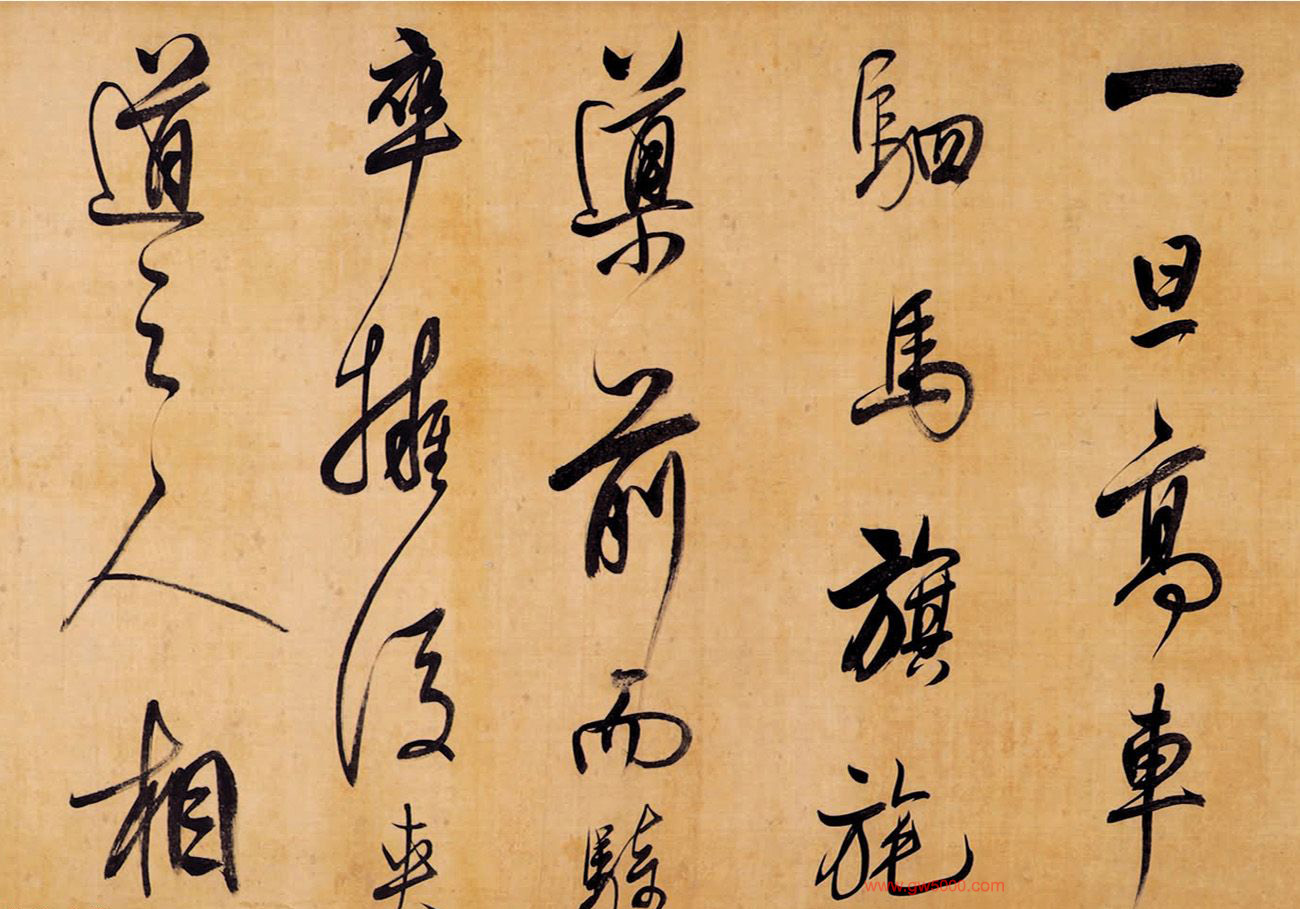 一旦高車
駟馬旗旄
導前而騎
卒擁後夾
道之人相
www.gw5000.com